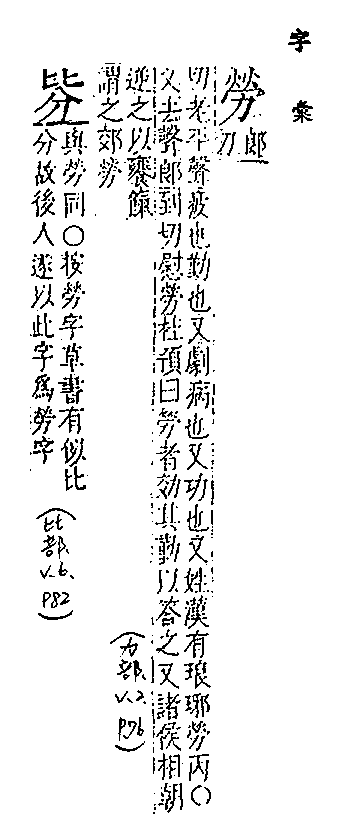 字彙
勞郎刀
切老平聲疲也勤也又劇病也又功也又姓漢有琅琊勞丙○
又去聲郎到切慰勞杜預曰勞者効其勤以答之又諸侯相朝
逆之以饔餼
謂之郊勞
(力部.v.2.p76)
𣬉與勞同○按勞字草書有似比
分故後人遂以此字為勞字
(比部.v.6.p82)